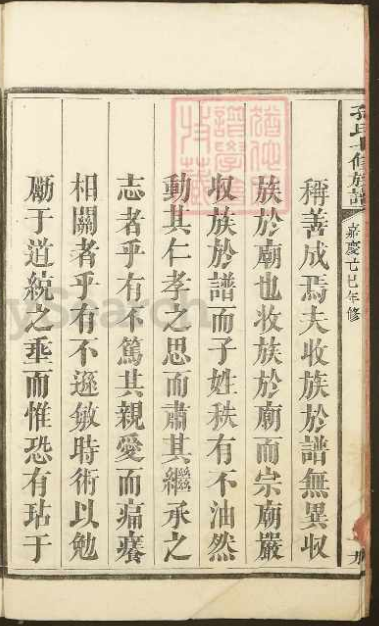 稱善成焉夫收族於譜無異收
族於廟也收族於廟而宗廟嚴
收族於譜而子姓秩有不油然
動其仁孝之思而肅其繼承之
志者乎有不篤其親愛而痛癢
相關者乎有不遜敏時術以勉
勵于道統之垂而惟恐有玷于
孫氏十修族譜
嘉慶亡巳年修